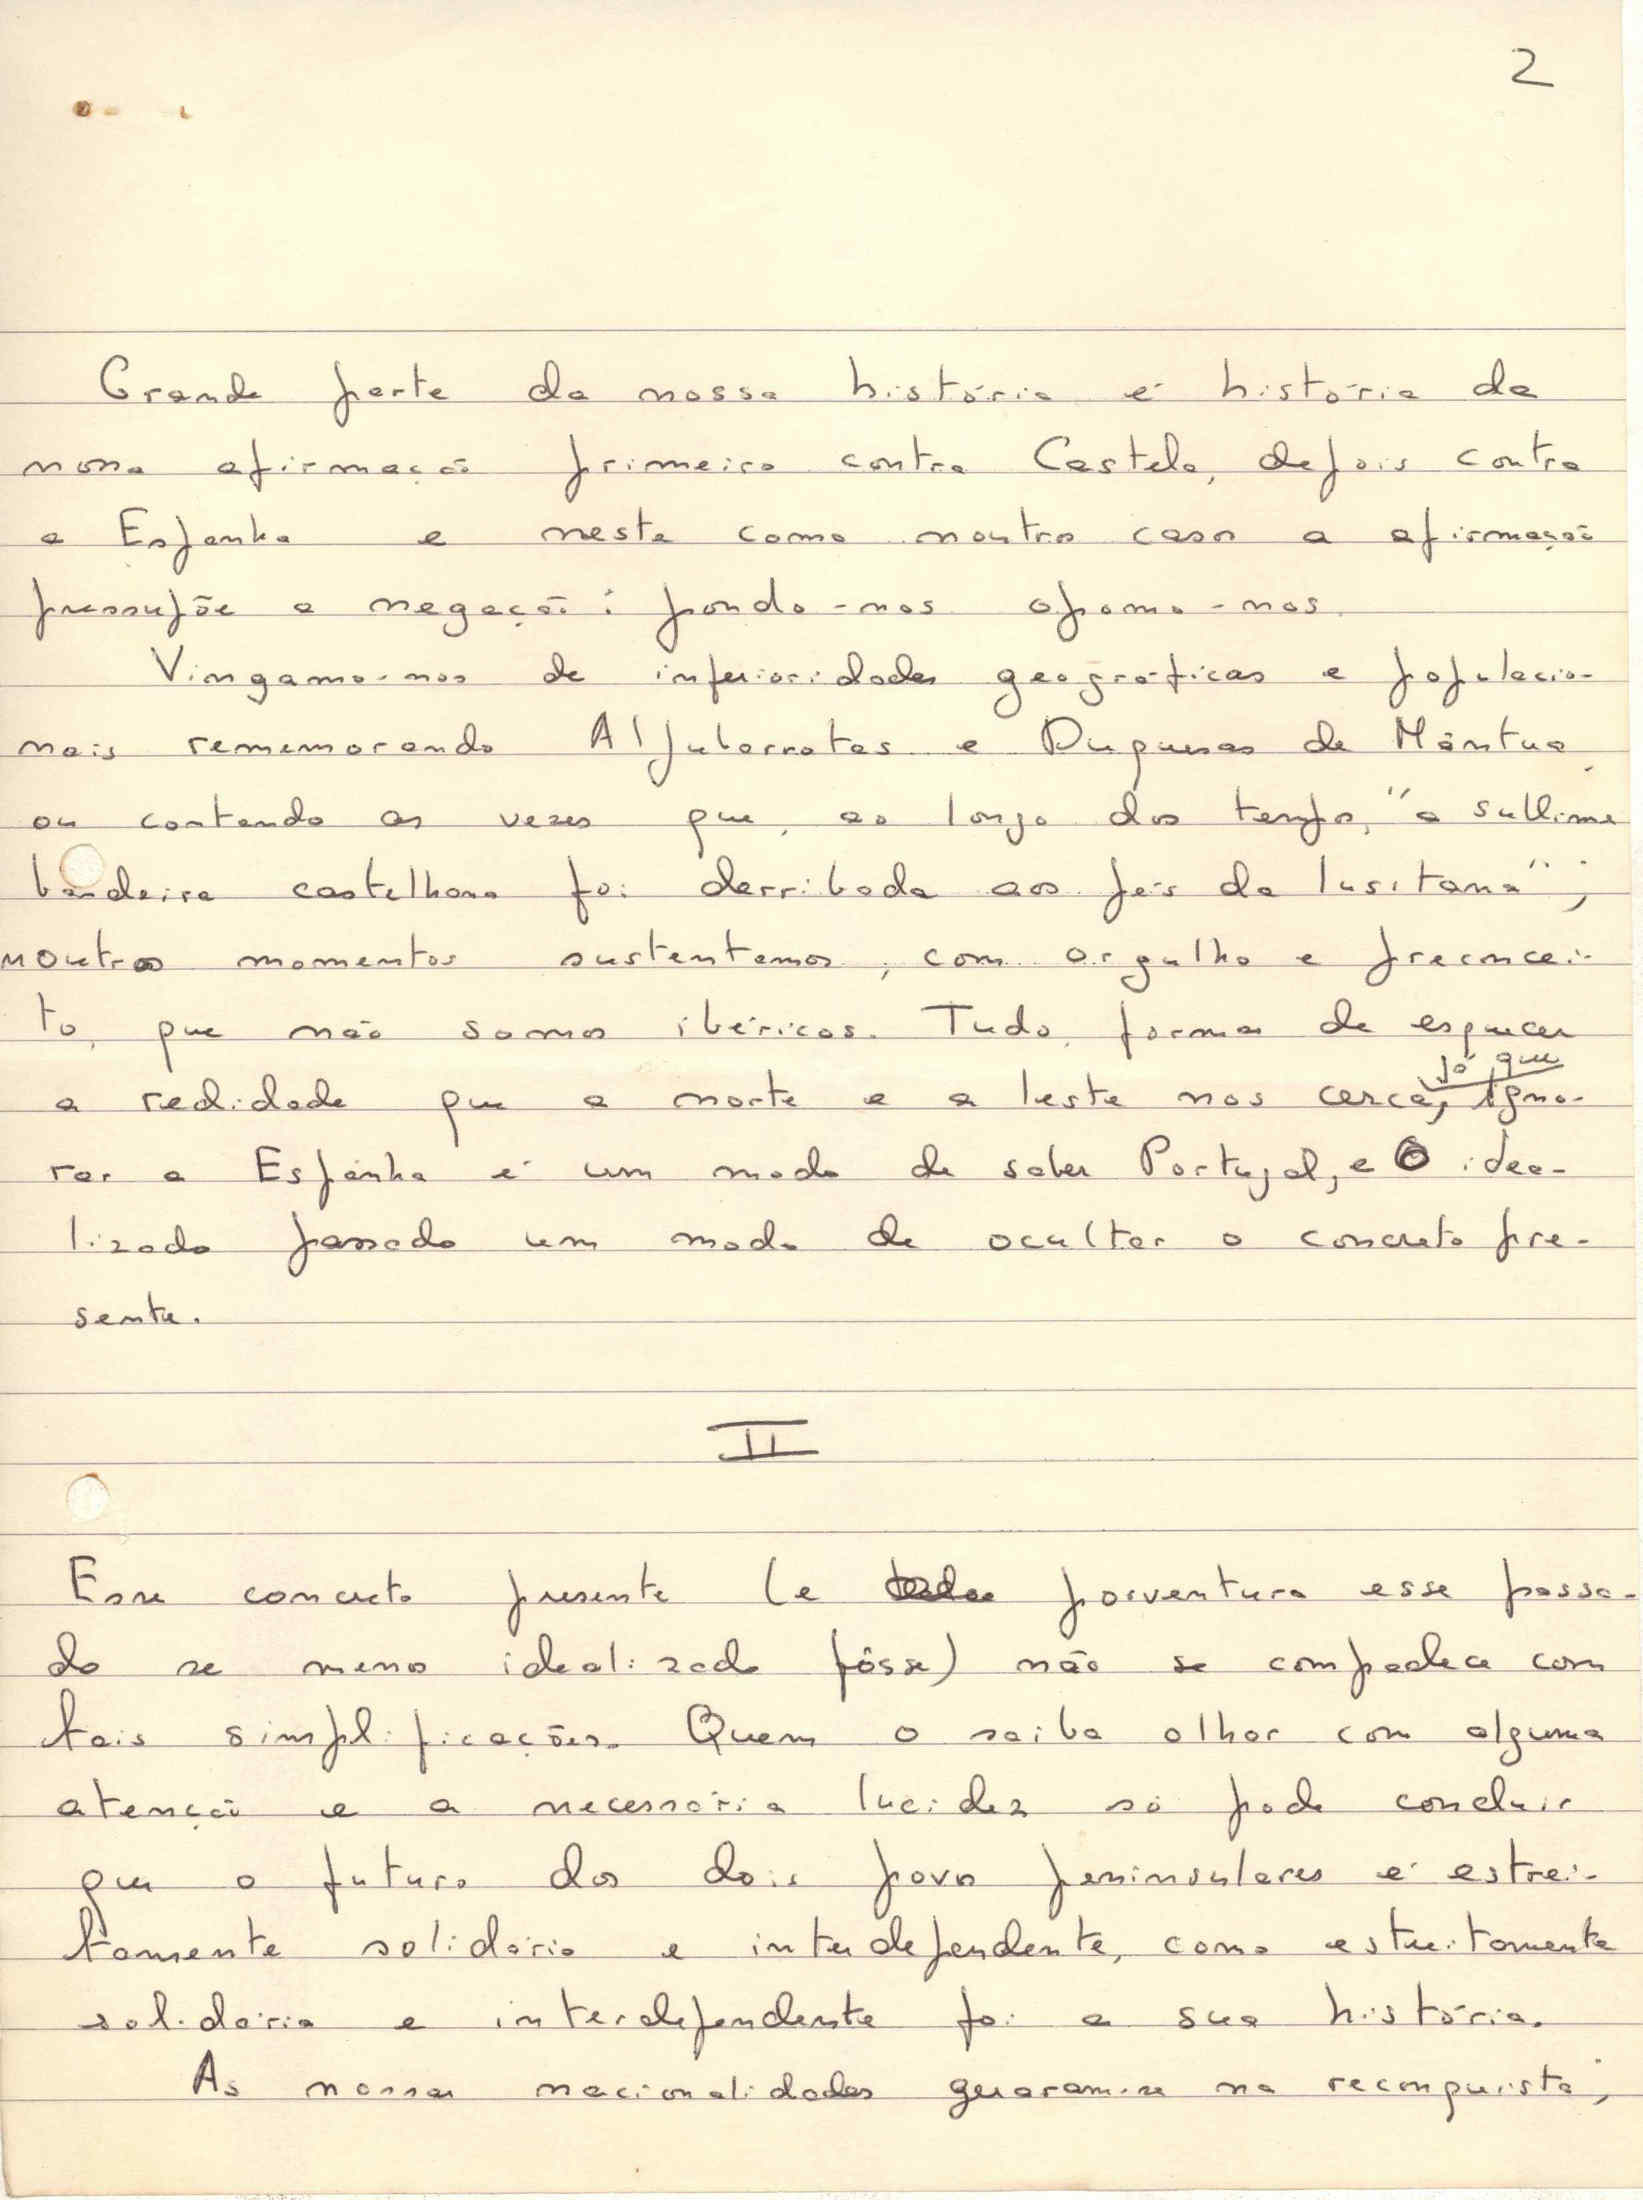 2
Grande parte da nossa história é história da
nossa afirmação primeiro contra Castela, depois contra
a Espanha e neste como noutro caso a afirmação
pressupõe a negação: pondo-nos opomo-nos.
Vingamo-nos de inferioridades geográficas e populacio-
nais rememorando Aljubarrotas e Duquesas de Mântua
ou contando as vezes que, ao longo dos tempos, "a sublime
bandeira castelhana foi derribada aos pés da lusitana";
noutros momentos sustentamos, com orgulho e preconcei-
to, que não somos ibéricos. Tudo formas de esquecer
já que
a realidade que a norte e a leste nos cerca, igno-
rar a Espanha é um modo de saber Portugal, e o idea-
lizado passado um modo de ocultar o concreto pre-
sente.
II
Esse concreto presente (e porventura esse passa-
do se menos idealizado fôsse) não se compadece com
tais simplificações. Quem o saiba olhar com alguma
atenção e a necessária lucidez só pode concluir
que o futuro dos dois povos peninsulares é estrei-
tamente solidário e interdependente, como estreitamente
solidária e interdependente foi a sua história.
As nossas nacionalidades geraram-se na reconquista;